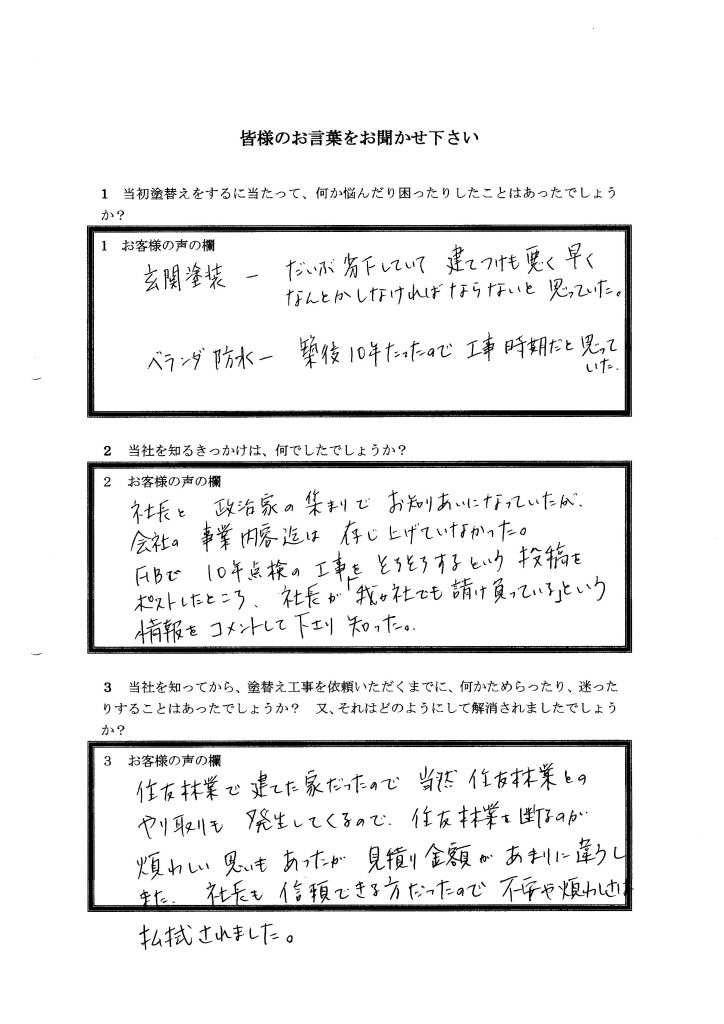 皆様のお言葉をお聞かせ下さい
1 当初塗替えをするに当たって、何か悩んだり困ったりしたことはあったでしょう
か?
1 お客様の声の欄
玄関塗装 ー だいぶ劣下していて 建てつけも悪く 早く
なんとかしなければならないと思っていた。
ベランダ防水ー 築後10年たったので 工事時期だと思って
いた。
2 当社を知るきっかけは、何でしたでしょうか?
2 お客様の声の欄
社長と 政治家の集まりで お知りあいになっていたが、
会社の 事業内容迄は 存じ上げていなかった。
FBで 10年点検の工事を そろそろするという 投稿を
ポストしたところ、社長が「我が社でも請け負っている」という
情報を コメントして下さり 知った。
3 当社を知ってから、塗替え工事を依頼いただくまでに、何かためらったり、迷った
りすることはあったでしょうか? 又、それはどのようにして解消されましたでしょう
か?
3 お客様の声の欄
住友林業で 建てた家だったので 当然 住友林業との
やり取りも 発生してくるので、住友林業を断るのが
煩わしい思いも あったが 見積り金額が あまりに違うし
また、社長も 信頼できる方だったので 不安や煩わしさは
払拭されました。